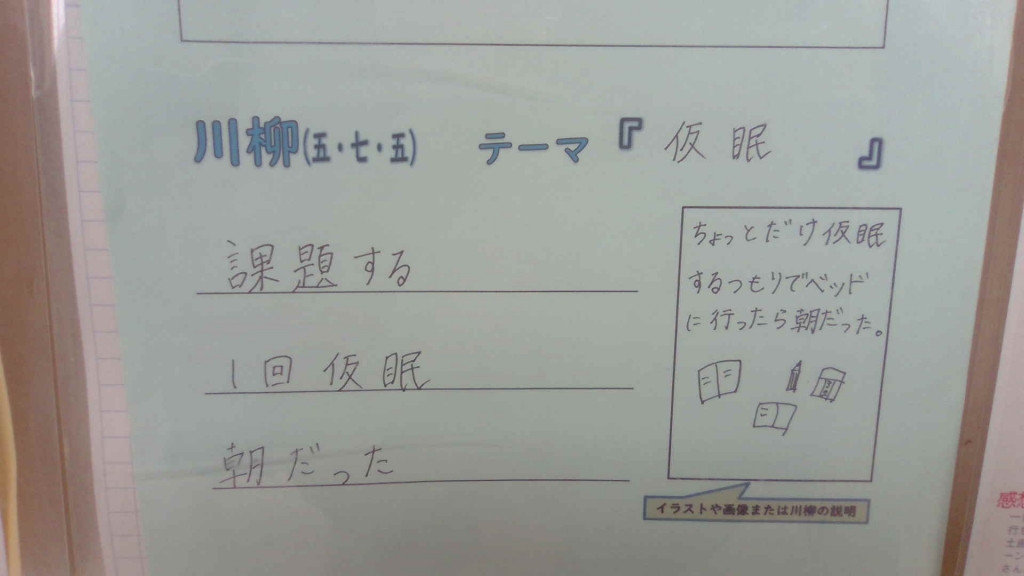 川柳(五・七・五) テーマ『仮眠』
課題する
1回仮眠
朝だった
ちょっとだけ仮眠
するつもりでベッド
に行ったら朝だった。
イラストや画像または川柳の説明